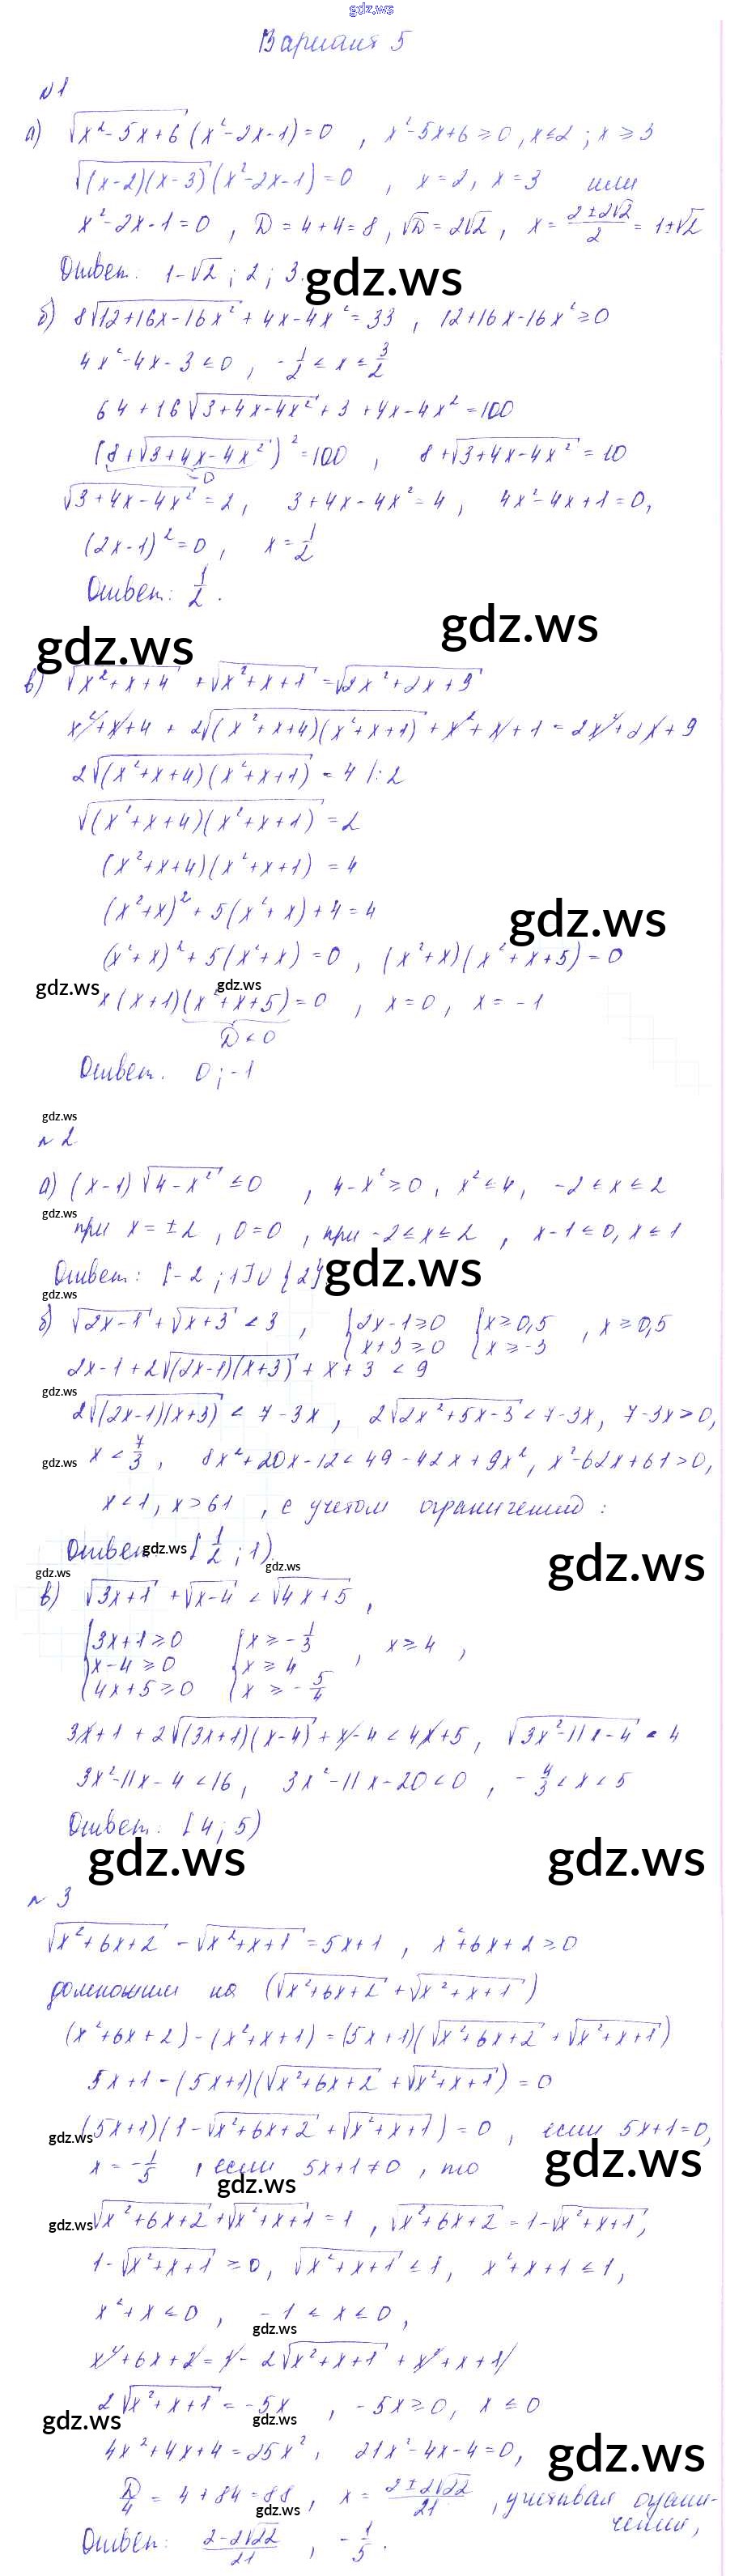 gdz.ws
Вариант 5
№1
а) √(x²-5x+6) (x²-2x-1)=0 , x²-5x+6≥0, x≤2 ; x≥3
√((x-2)(x-3)) (x²-2x-1)=0 , x=2, x=3 или
x²-2x-1=0 , D=4+4=8, √D=2√2, x=(2±2√2)/2=1±√2
Ответ: 1-√2 ; 2 ; 3.
gdz.ws
б) 8√(12+16x-16x²)+4x-4x²=33 , 12+16x-16x²≥0
4x²-4x-3≤0 , -1/2≤x≤3/2
64+16√(3+4x-4x²)+3+4x-4x²=100
(8+√(3+4x-4x²))²=100 , 8+√(3+4x-4x²)=10
√(3+4x-4x²)=2, 3+4x-4x²=4, 4x²-4x+1=0,
(2x-1)²=0, x=1/2
Ответ: 1/2.
gdz.ws
gdz.ws
в) √(x²+x+4) +√(x²+x+1)=√(2x²+2x+9)
x²+x+4 + 2√((x²+x+4)(x²+x+1))+x²+x+1=2x²+2x+9
2√((x²+x+4)(x²+x+1)) = 4 /:2
√((x²+x+4)(x²+x+1))=2
(x²+x+4)(x²+x+1) = 4
(x²+x)²+5(x²+x)+4=4
gdz.ws
(x²+x)²+5(x²+x)=0 , (x²+x)(x²+x+5)=0
gdz.ws gdz.ws
x(x+1)(x²+x+5)=0 , x=0, x=-1
D<0
Ответ. 0;-1
gdz.ws
№2
а) (x-1)√(4-x²)≤0 , 4-x²≥0, x²≤4, -2≤x≤2
gdz.ws
при x=±2, 0=0 , при -2≤x≤2 , x-1≤0, x≤1
Ответ: [-2;1]∪{2}
gdz.ws
gdz.ws
б) √(2x-1)+√(x+3)<3 , {2x-1≥0 {x≥0,5 , x≥0,5
x+3≥0 x≥-3
2x-1+2√((2x-1)(x+3))+x+3<9
gdz.ws
2√((2x-1)(x+3)) < 7-3x, 2√(2x²+5x-3)<7-3x, 7-3x>0,
gdz.ws
x<7/3, 8x²+20x-12<49-42x+9x², x²-62x+61>0,
x<1, x>61 , с учетом ограничений:
Ответ: [1/2;1).
gdz.ws
gdz.ws
gdz.ws
gdz.ws
в) √(3x+1)+√(x-4)<√(4x+5),
{3x+1≥0 {x≥-1/3 , x≥4 ,
x-4≥0 x≥4
4x+5≥0 x≥-5/4
3x+1+2√((3x+1)(x-4))+x-4<4x+5, √(3x²-11x-4)<4
3x²-11x-4<16, 3x²-11x-20<0 , -4/3<x<5
Ответ: [4;5)
gdz.ws gdz.ws
№3
√(x²+6x+2) -√(x²+x+1)=5x+1 , x²+6x+2≥0
домножим на (√(x²+6x+2)+√(x²+x+1))
(x²+6x+2)-(x²+x+1)=(5x+1)(√(x²+6x+2)+√(x²+x+1))
5x+1-(5x+1)(√(x²+6x+2)+√(x²+x+1))=0
gdz.ws
(5x+1)(1-√(x²+6x+2)+√(x²+x+1))=0 , если 5x+1=0,
gdz.ws
x=-1/5 , если 5x+1≠0, то
gdz.ws
gdz.ws
√(x²+6x+2)+√(x²+x+1)=1 , √(x²+6x+2)=1-√(x²+x+1),
1-√(x²+x+1)≥0, √(x²+x+1)≤1, x²+x+1≤1,
x²+x≤0 , -1≤x≤0,
gdz.ws
x²+6x+2=1-2√(x²+x+1)+x²+x+1
2√(x²+x+1)=-5x , -5x≥0, x≤0
gdz.ws gdz.ws
4x²+4x+4=25x², 21x²-4x-4=0,
gdz.ws
D/4 = 4+84=88, x=(2±2√22)/21 , учитывая ограни-
чения,
gdz.ws
Ответ: (2-2√22)/21 , -1/5.